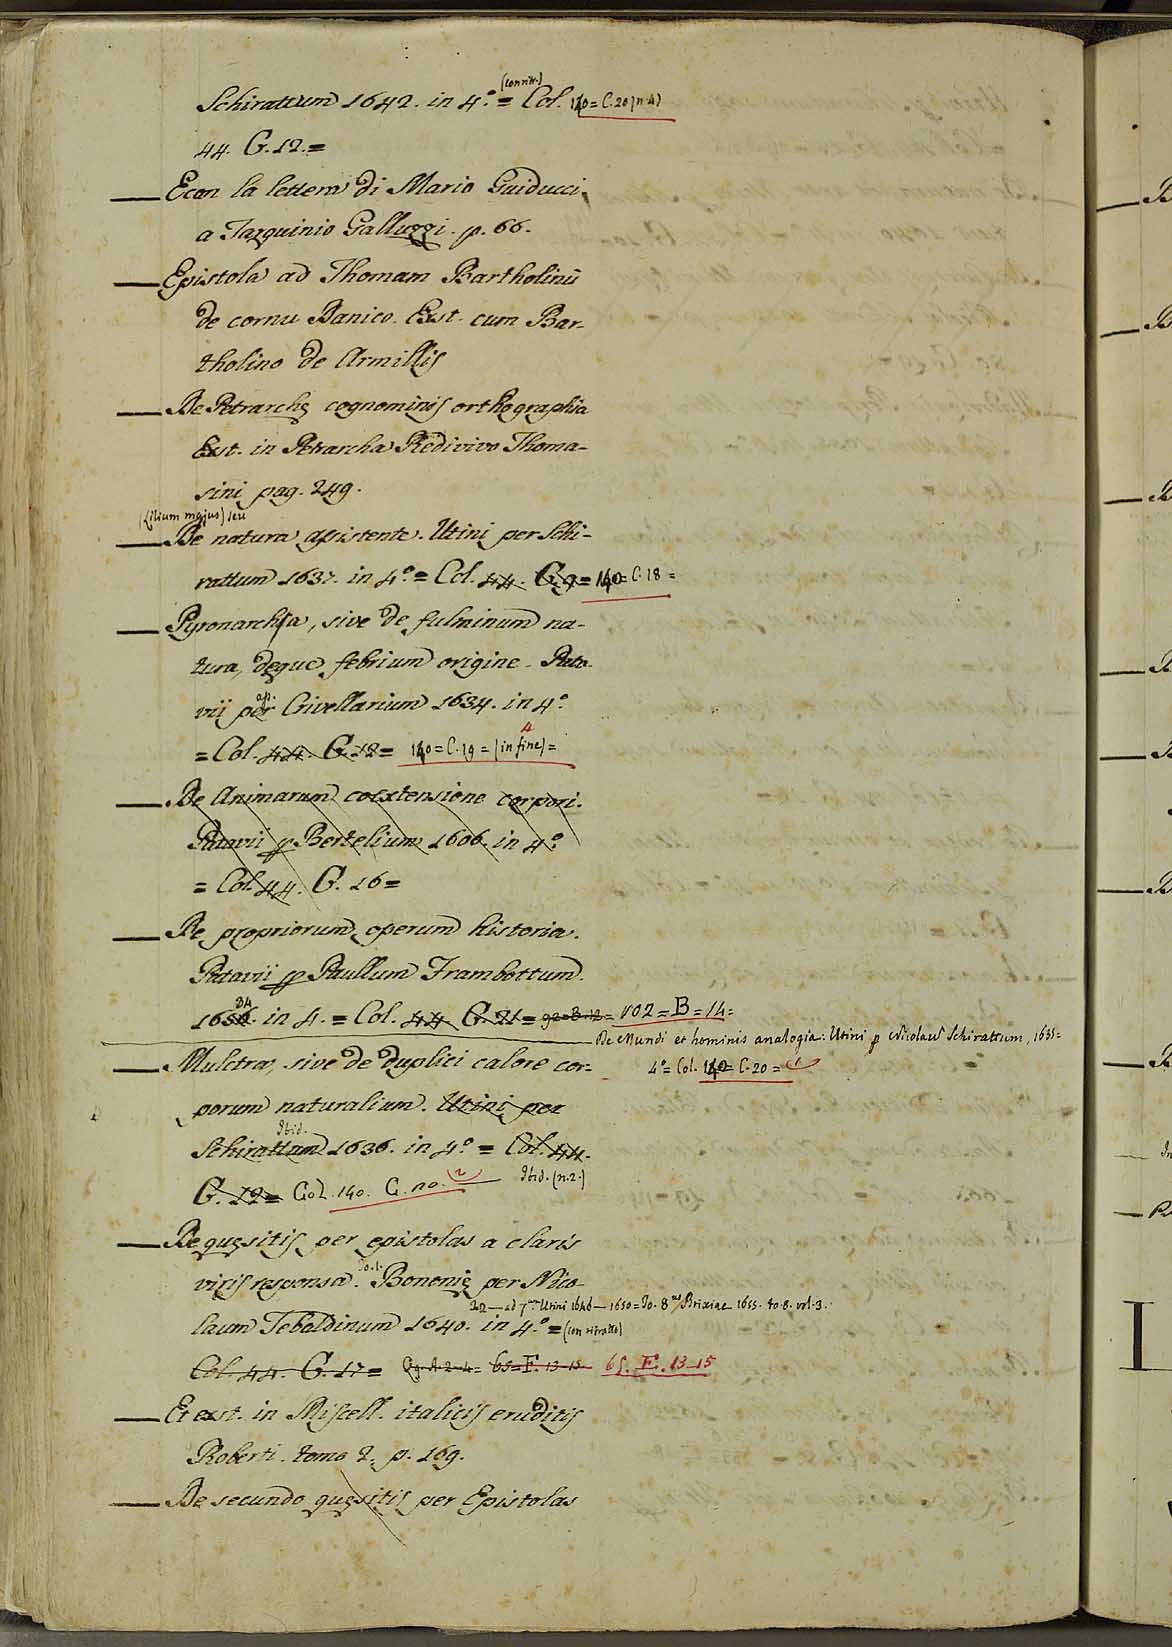 (con ritr.)
Schirattum 1642. in 4.º = Col. 140 = C. 20 (n. 4)
44. G. 12. =
— E con la lettera di Mario Guiducci
a Tarquinio Galluzzi. p. 66.
— Epistola ad Thomam Bartholinū
de cornu Danico. Exst. cum Bar-
tholino de Armillis
— De Petrarchę cognominis orthographia
Exst. in Petrarcha Redivivo Thoma-
sini pag. 249.
(Lilium majus) seu
— De natura assistente. Utini per Schi-
rattum 1637. in 4.º = Col. 44. G. 9 = 140 = C. 18 =
— Pyronarcha, sive de fulminum na-
tura, deque febrium origine. Pata-
vii per ap. Crivellarium 1634. in 4.º
= Col. 44. G. 12 = 140 = C. 19 = (in fine) =
— De Animarum coextensione corpori.
Patavii p Bertelium 1606. in 4.º
= Col. 44. G. 16 =
— De propriorum operum historia.
Patavii p Paullum Frambottum.
34
1656. in 4. = Col. 44 G. 21 = 92 = B. 12 = 102 = B = 14 =
De Mundi et hominis analogia: Utini p Nicolaū Schirattum, 1635 =
4º = Col. 140 = C. 20 = (1)
— Mulctra, sive de duplici calore cor-
porum naturalium. Utini per
Ibid.
Schirattum 1636. in 4.º = Col. 44.
G. 12 = Col. 140. C. 20. (2) — Ibid. (n. 2.)
— De quęsitis per epistolas a claris
viris responsa. To. 1. Bononię per Nico-
2.2 — ad 7.um Utini 1646 — 1650 = To. 8.us Brixiae 1655. to. 8. vol. 3.
laum Tebaldinum 1640. in 4.º = (con ritratto)
Col. 44. G. 17 = 65 = F. 13-15 65. F. 13-15
— Et exst. in Miscell. italicis eruditis
Roberti. tomo 2. p. 169.
— De secundo quęsitis per Epistolas